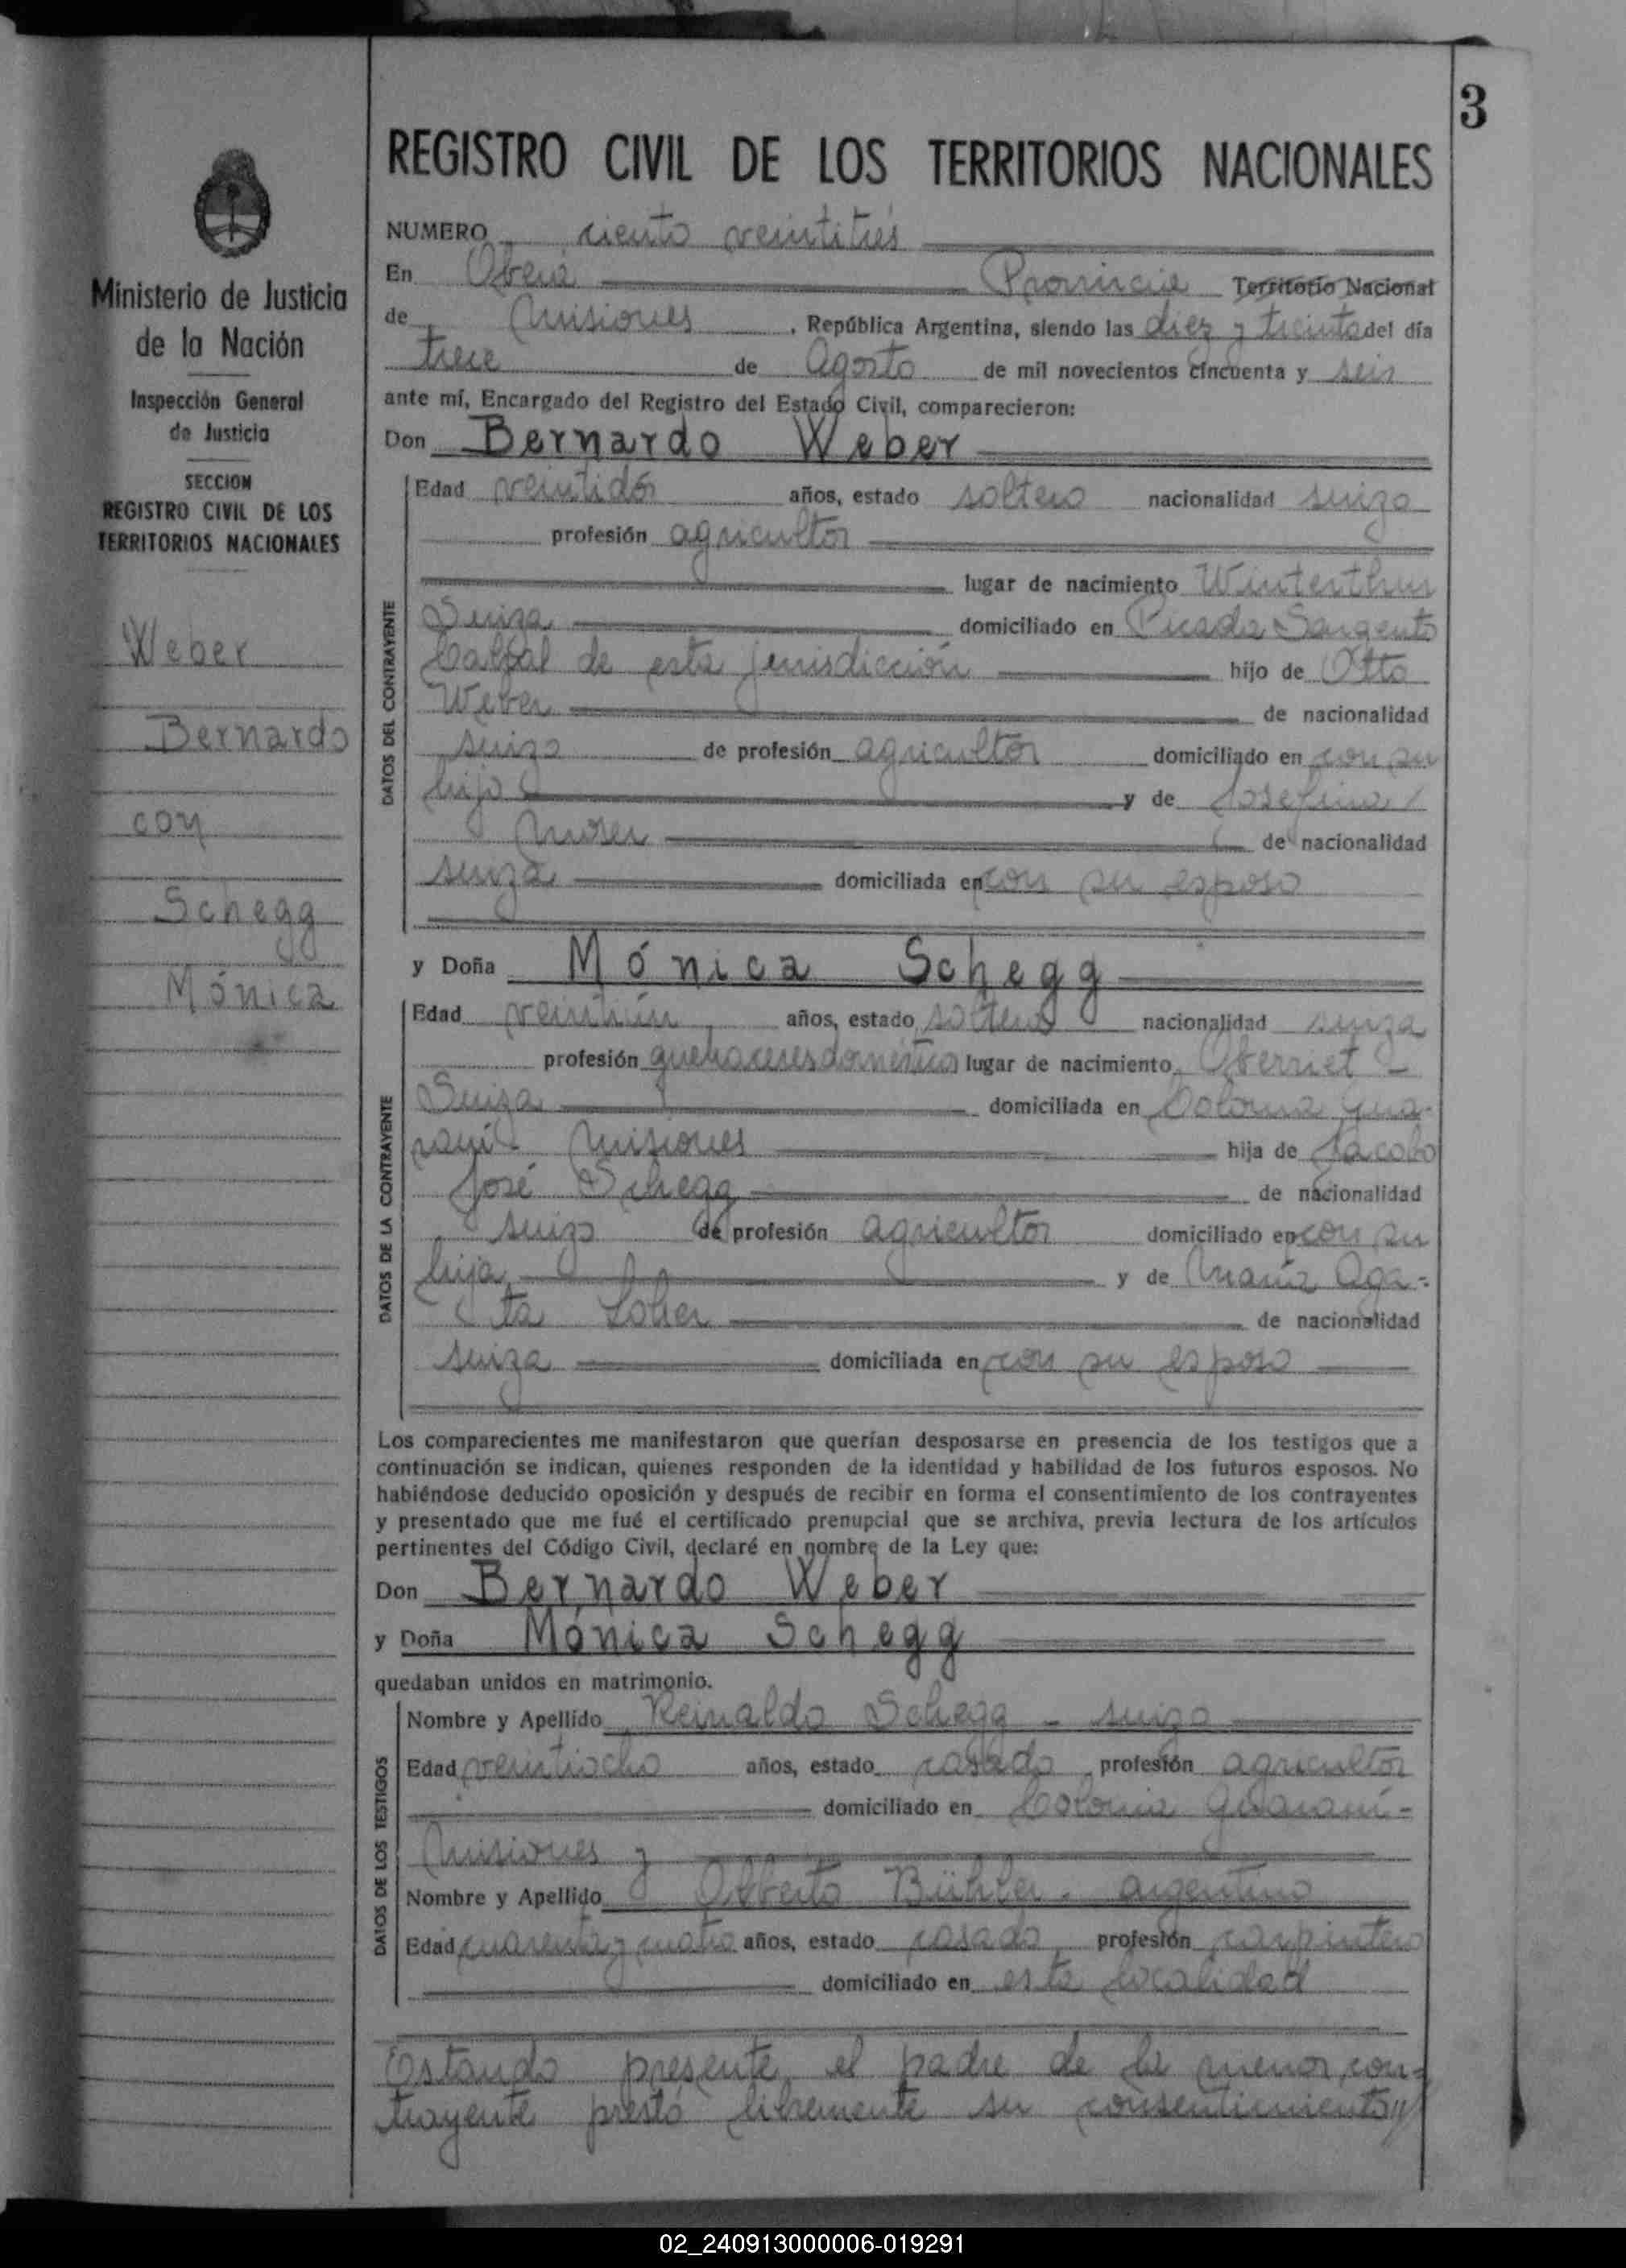 3
REGISTRO CIVIL DE LOS TERRITORIOS NACIONALES
Ministerio de Justicia
de la Nación
Inspección General
de Justicia
SECCION
REGISTRO CIVIL DE LOS
TERRITORIOS NACIONALES
Weber
Bernardo
con
Schegg
Mónica
NUMERO ciento veintitrés
En Oberá Provincia Territorio Nacional
de Misiones , República Argentina, siendo las diez y treinta del día
trece de Agosto de mil novecientos cincuenta y seis
ante mí, Encargado del Registro del Estado Civil, comparecieron:
Don Bernardo Weber
DATOS DEL CONTRAYENTE
Edad veintidós años, estado soltero nacionalidad suiza
profesión agricultor
lugar de nacimiento Winterthur
Suiza domiciliado en Picada Sargento
Cabral de esta jurisdicción hijo de Otto
Weber de nacionalidad
suizo de profesión agricultor domiciliado en con su
hijo y de Josefina
Moser de nacionalidad
suiza domiciliada en con su esposo
y Doña Mónica Schegg
DATOS DE LA CONTRAYENTE
Edad veintiún años, estado soltera nacionalidad suiza
profesión quehaceres domésticos lugar de nacimiento Oberriet -
Suiza domiciliada en Colonia Gua-
raní - Misiones hija de Jacobo
José Schegg de nacionalidad
suizo de profesión agricultor domiciliado en con su
hija y de María Aga-
ta Loher de nacionalidad
suiza domiciliada en con su esposo
Los comparecientes me manifestaron que querían desposarse en presencia de los testigos que a
continuación se indican, quienes responden de la identidad y habilidad de los futuros esposos. No
habiéndose deducido oposición y después de recibir en forma el consentimiento de los contrayentes
y presentado que me fué el certificado prenupcial que se archiva, previa lectura de los artículos
pertinentes del Código Civil, declaré en nombre de la Ley que:
Don Bernardo Weber
y Doña Mónica Schegg
quedaban unidos en matrimonio.
DATOS DE LOS TESTIGOS
Nombre y Apellido Reinaldo Schegg - suizo
Edad veintiocho años, estado casado profesión agricultor
domiciliado en Colonia Guaraní -
Misiones y
Nombre y Apellido Alberto Bühler - argentino
Edad cuarenta y cuatro años, estado casado profesión carpintero
domiciliado en esta localidad
Estando presente el padre de la menor con-
trayente prestó libremente su consentimiento //
02_240913000006-019291